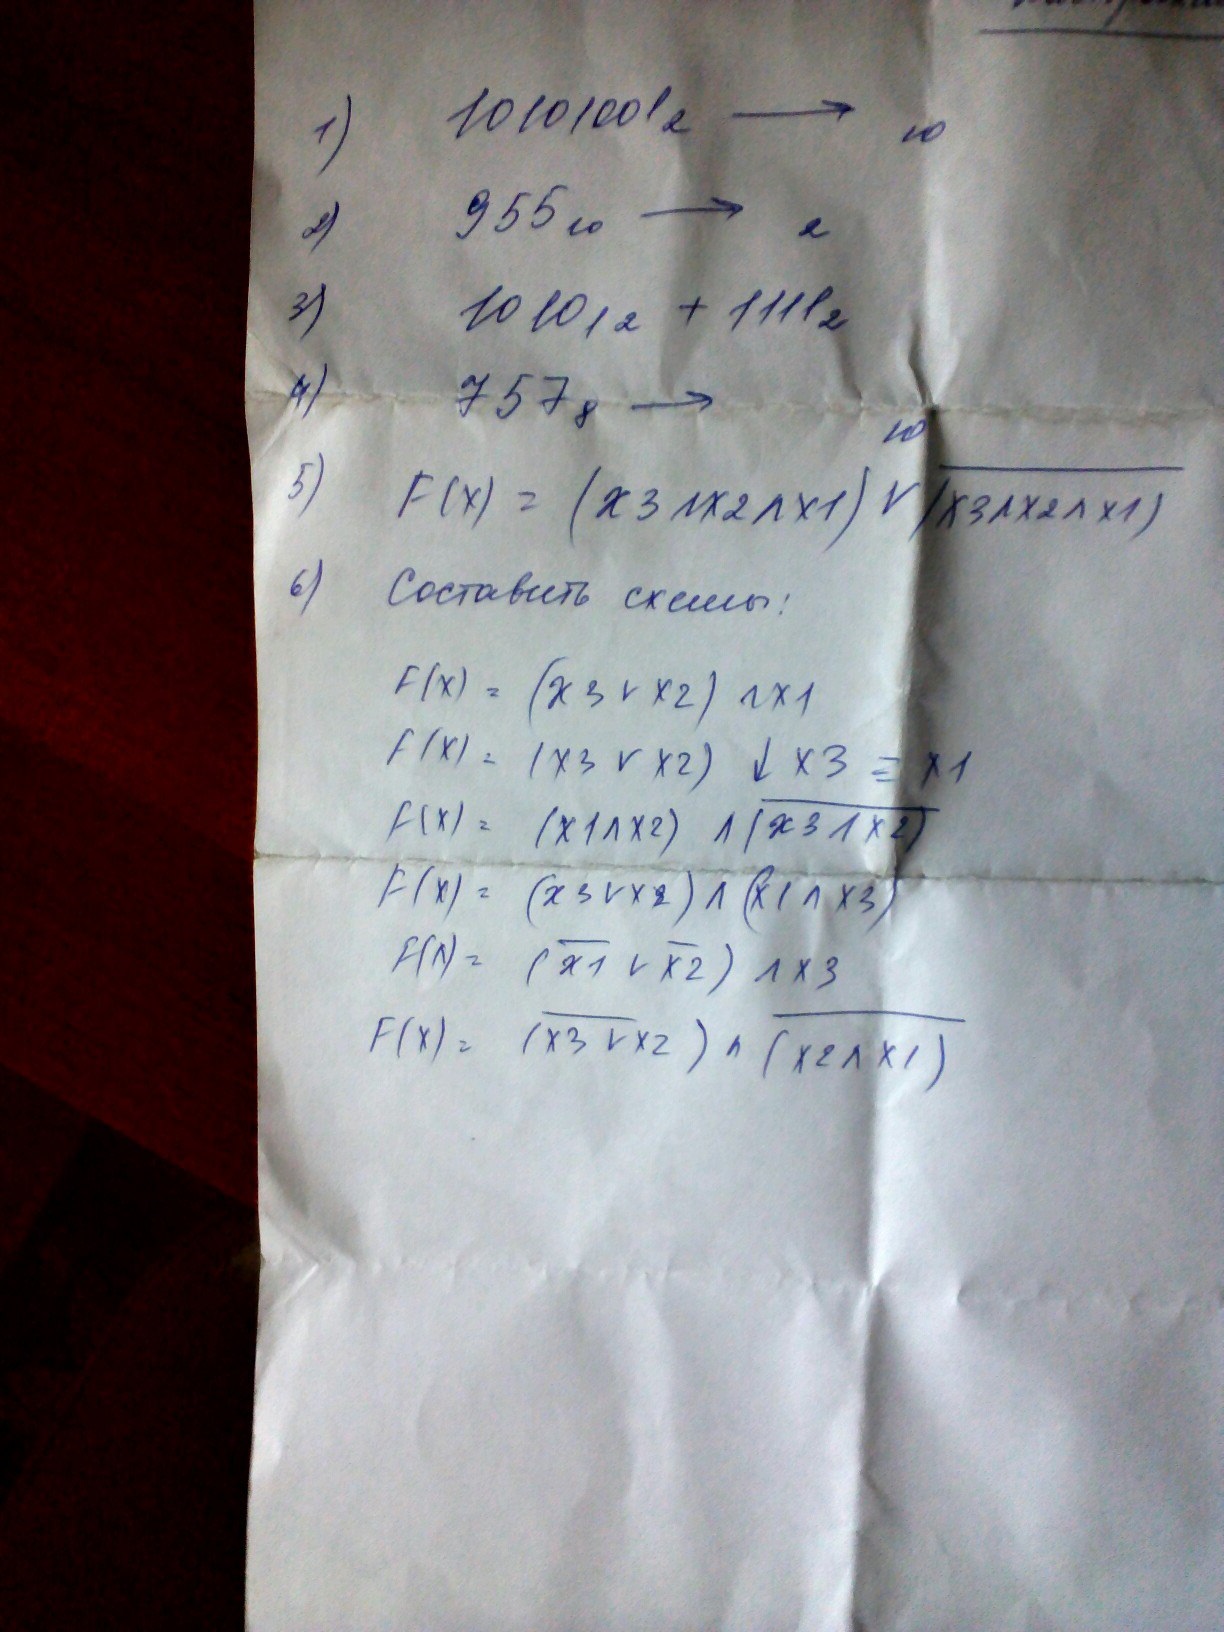 1) 10101001₂ → ₁₀
2) 955₁₀ → ₂
3) 10101₂ + 1111₂
4) 757₈ → ₁₀
5) F(x) = (x3 ∧ x2 ∧ x1) ∨ (x̅3̅ ̅∧̅ ̅x̅2̅ ̅∧̅ ̅x̅1̅)
6) Составить схемы:
F(x) = (x3 ∨ x2) ∧ x1
F(x) = (x3 ∨ x2) ↓ x3 ≡ x1
F(x) = (x1 ∧ x2) ∧ (x̅3̅ ̅∧̅ ̅x̅2̅)
F(x) = (x3 ∨ x2) ∧ (x1 ∧ x3)
F(x) = (x̅1̅ ∨ x̅2) ∧ x3
F(x) = (x̅3̅ ̅∨̅ ̅x̅2) ∧ (x̅2̅ ̅∧̅ ̅x̅1̅)